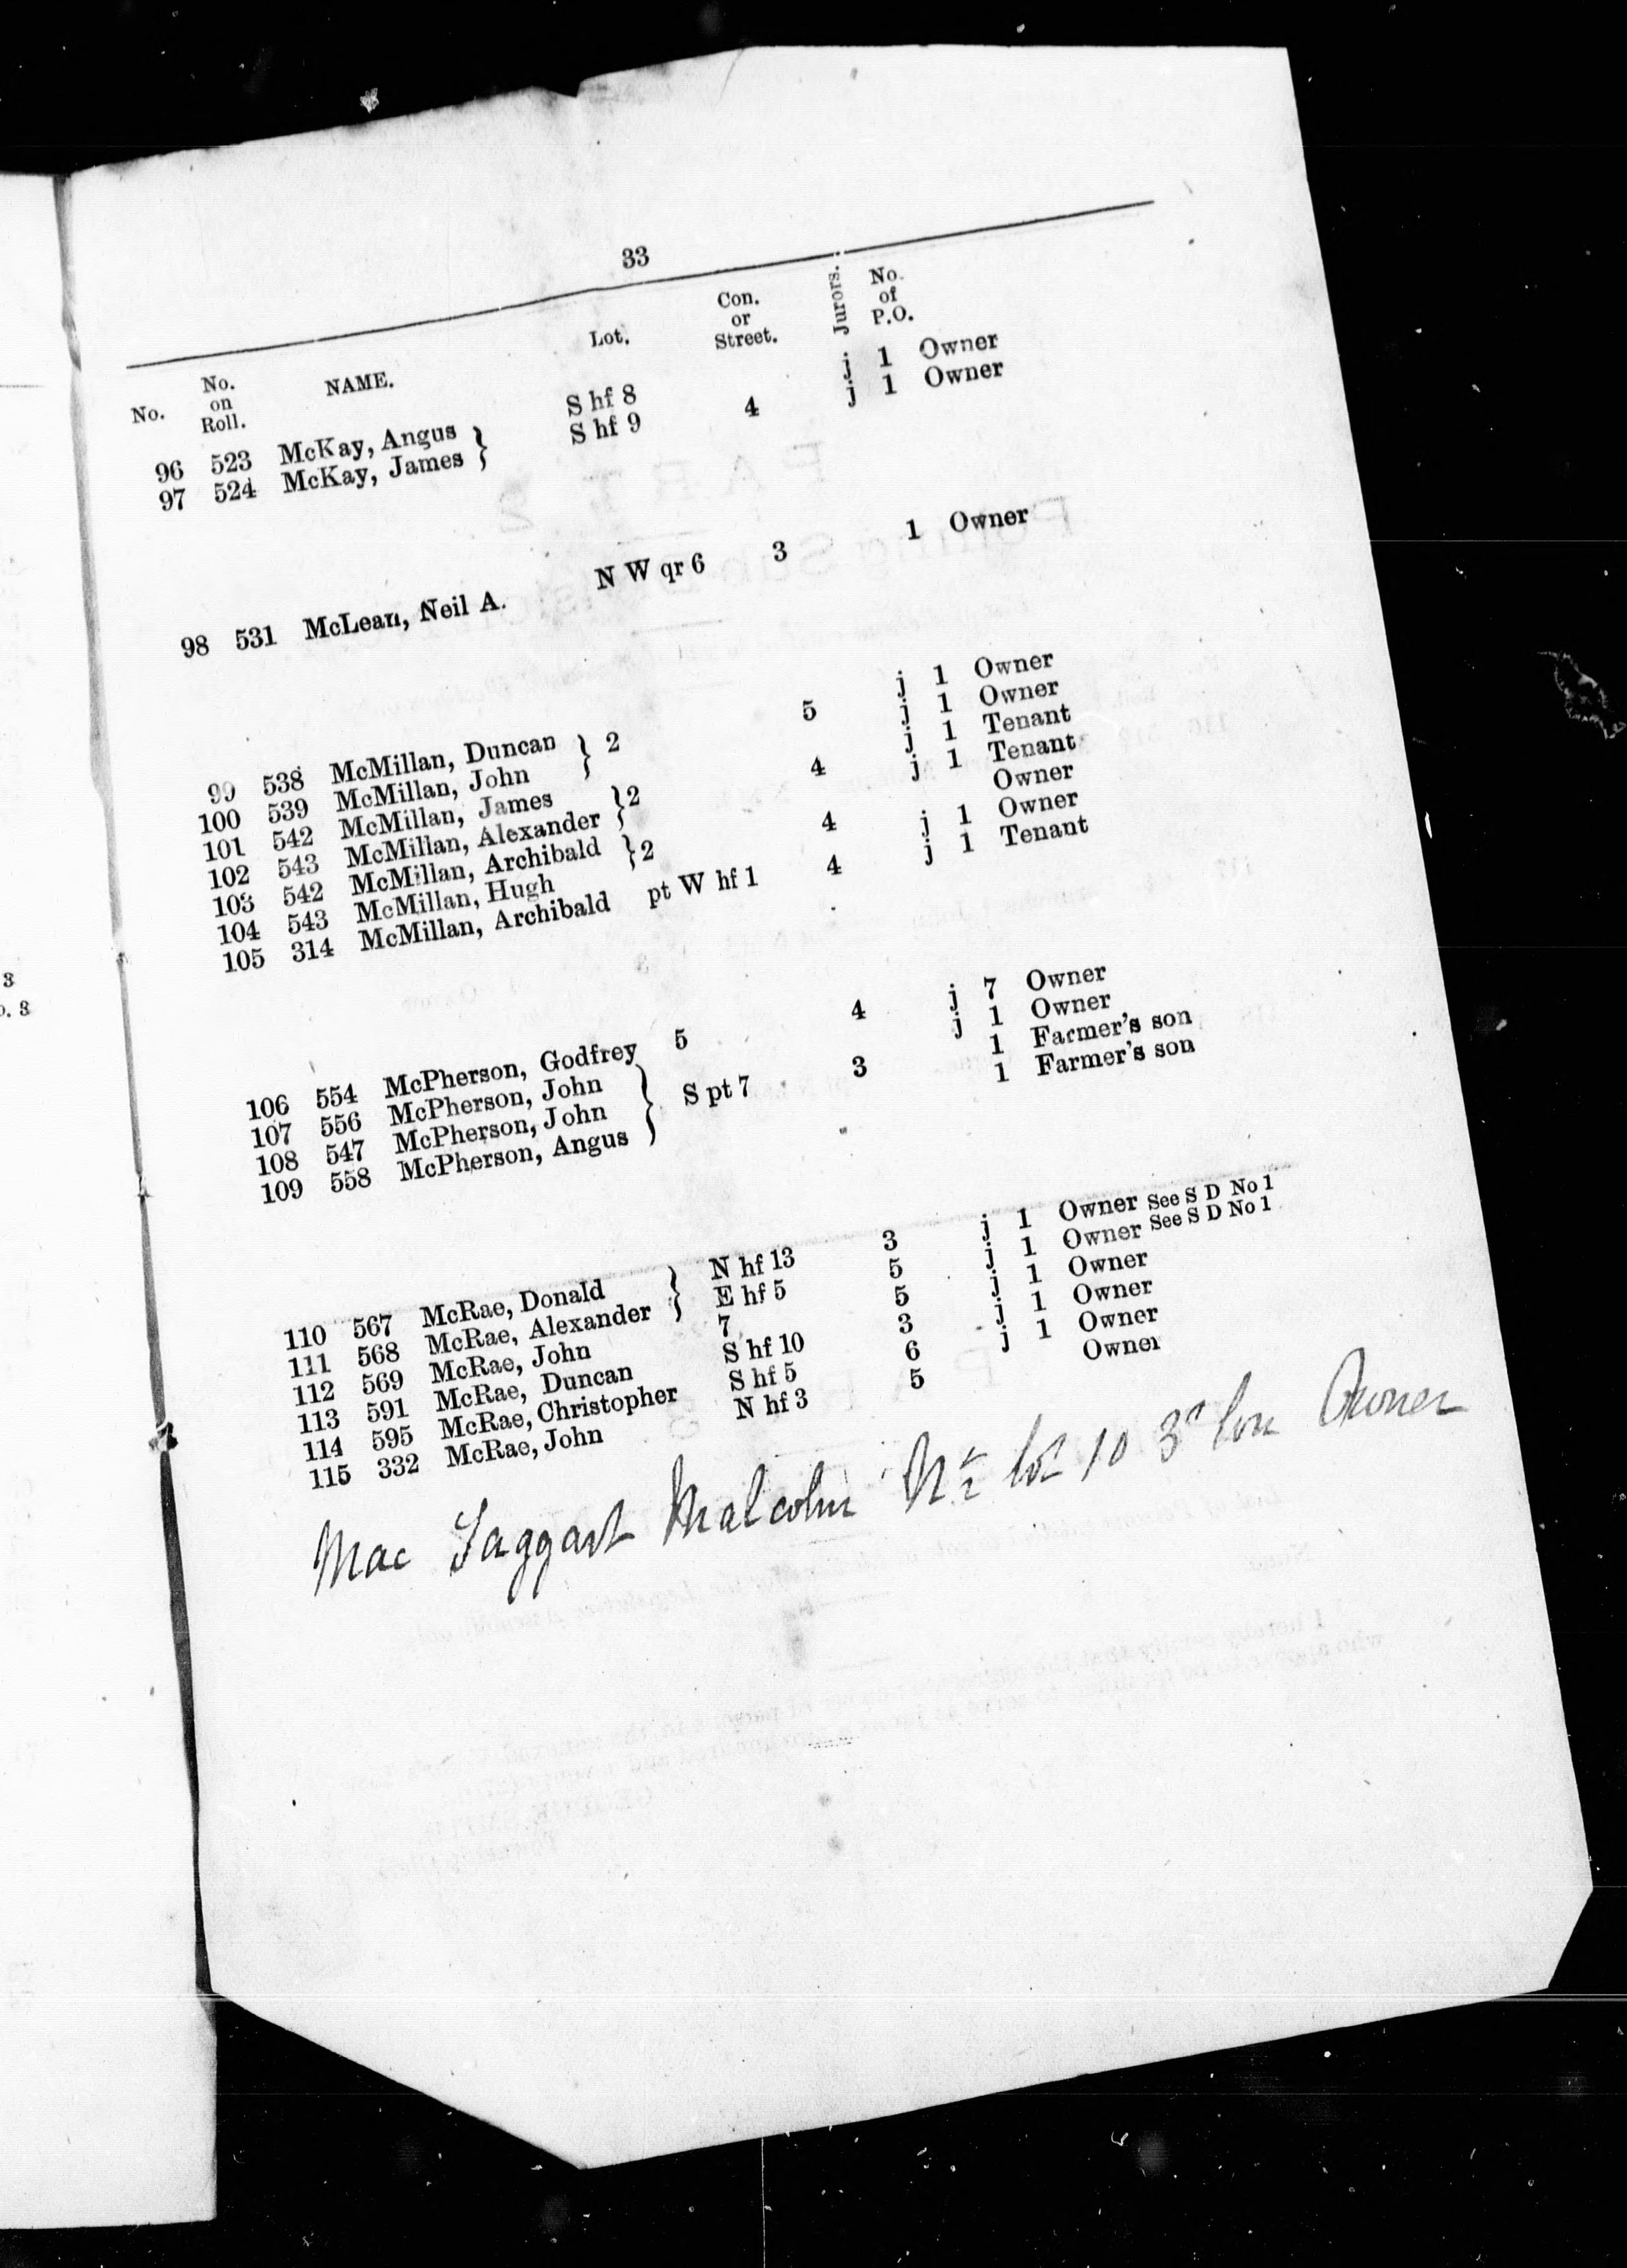 33
No. No. on Roll. NAME. Lot. Con. or Street. Jurors. No. of P.O.
96 523 McKay, Angus } S hf 8 j 1 Owner
97 524 McKay, James S hf 9 4 j 1 Owner
98 531 McLean, Neil A. N W qr 6 3 1 Owner
99 538 McMillan, Duncan } 2 5 j 1 Owner
100 539 McMillan, John j 1 Owner
101 542 McMillan, James } 2 4 j 1 Tenant
102 543 McMillan, Alexander j 1 Tenant
103 542 McMillan, Archibald } 2 4 Owner
104 543 McMillan, Hugh j 1 Owner
105 314 McMillan, Archibald pt W hf 1 4 j 1 Tenant
106 554 McPherson, Godfrey 5 4 j 7 Owner
107 556 McPherson, John } j 1 Owner
108 547 McPherson, John S pt 7 3 1 Farmer's son
109 558 McPherson, Angus 1 Farmer's son
110 567 McRae, Donald } N hf 13 3 j 1 Owner See S D No 1
111 568 McRae, Alexander E hf 5 5 j 1 Owner See S D No 1
112 569 McRae, John 7 5 j 1 Owner
113 591 McRae, Duncan S hf 10 3 j 1 Owner
114 595 McRae, Christopher S hf 5 6 j 1 Owner
115 332 McRae, John N hf 3 5 Owner
Mac Taggart Malcolm N ½ lot 10 3d Con Owner